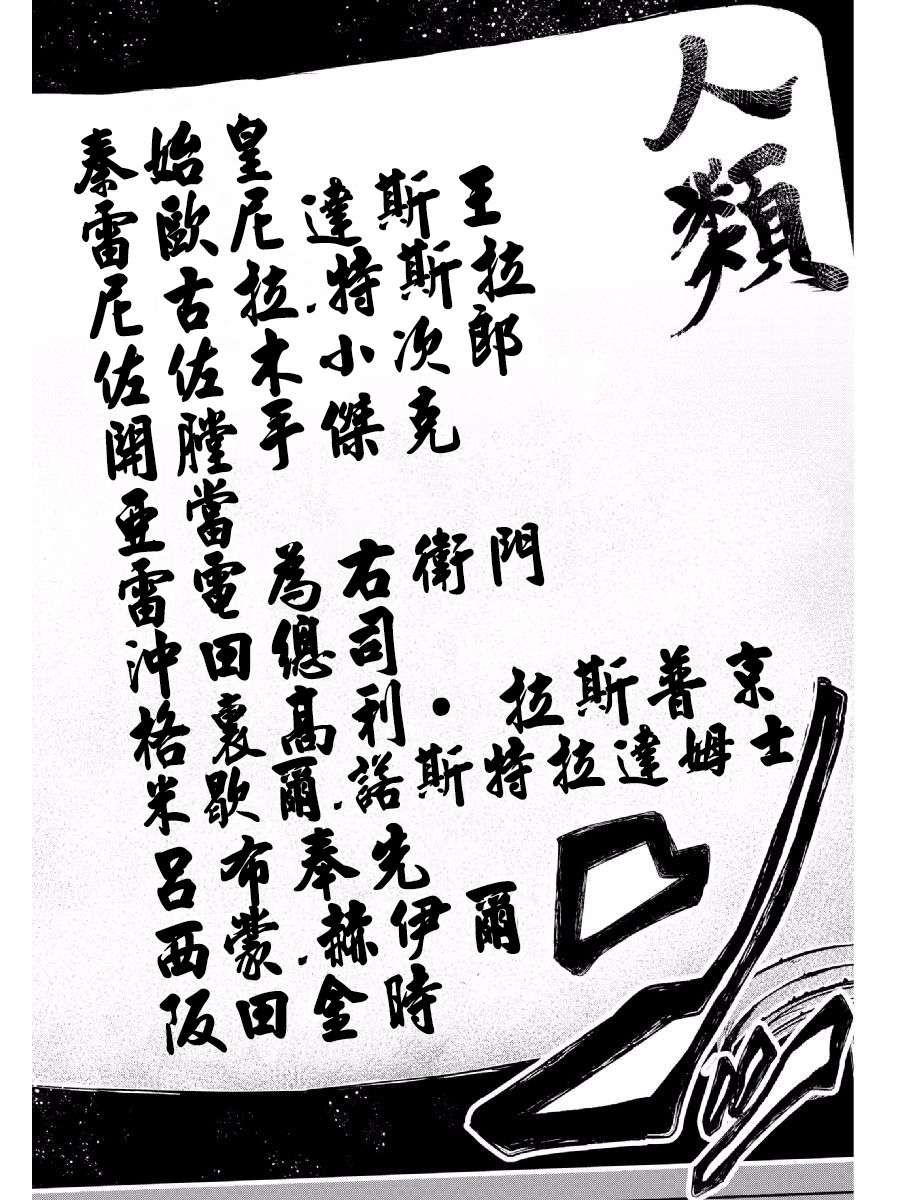 人類
秦始皇
雷歐尼達斯王
尼古拉.特斯拉
佐佐木小次郎
開膛手傑克
亞當
雷電為右衛門
沖田總司
格裏高利・拉斯普京
米歇爾.諾斯特拉達姆士
呂布奉先
西蒙.赫伊爾
阪田金時